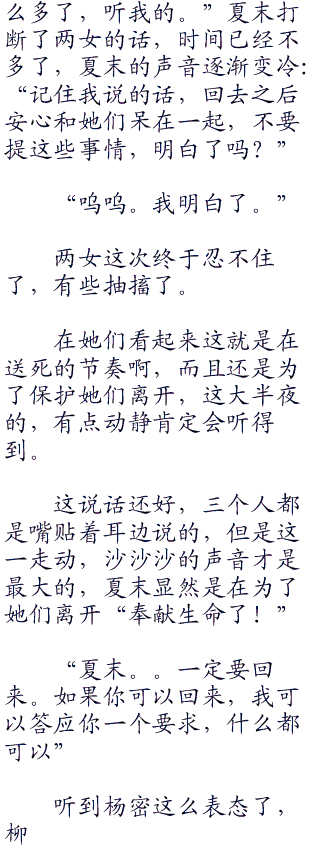 么多了，听我的。”夏末打
断了两女的话，时间已经不
多了，夏末的声音逐渐变冷：
“记住我说的话，回去之后
安心和她们呆在一起，不要
提这些事情，明白了吗？”
“呜呜。我明白了。”
两女这次终于忍不住
了，有些抽搐了。
在她们看起来这就是在
送死的节奏啊，而且还是为
了保护她们离开，这大半夜
的，有点动静肯定会听得
到。
这说话还好，三个人都
是嘴贴着耳边说的，但是这
一走动，沙沙沙的声音才是
最大的，夏末显然是在为了
她们离开“奉献生命了！”
“夏末。。一定要回
来。如果你可以回来，我可
以答应你一个要求，什么都
可以”
听到杨密这么表态了，
柳